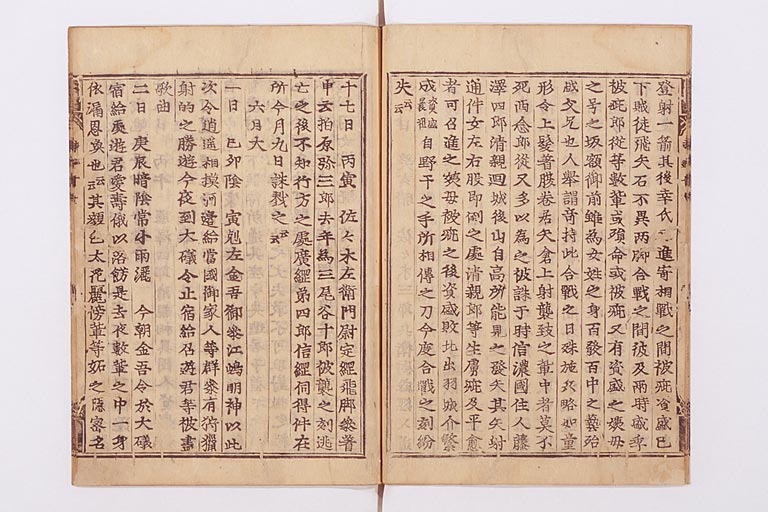 登射一箭其後幸氏進寄相戰之間被疵資盛已
下賊徒飛矢石不異兩脚合戰之間彼及兩時盛季
被疵郎從等數輩或殞命或被疵又有資盛之姨母
之号之坂額御前雖為女姓之身百發百中之藝殆
越父兄也人擧謂奇持此合戰之日殊施兵略如童
形令上髮着腹卷居矢倉上射襲致之輩中者莫不
死西念郎從又多以為之被誅于時信濃國住人藤
澤四郎清親廻城後山自高所能見之發矢其矢射
通件女左右股即倒之處清親郎等生虜疵及平愈
者可召進之姨母被疵之後資盛敗北出羽城介繁
成資盛曩祖自野干之手所相傳之刀今度合戰之刻紛
失云云
十七日 丙寅 佐々木左衛門尉定經飛脚參着
申云柏原弥三郎去年為三尾谷十郎被襲之刻逃
亡之後不知行方之處廣經弟四郎信經伺得件在
所今月九日誅戮之云云
六月大
一日 己夘陰 寅剋左金吾御參江嶋明神以此
次令逍遥相摸河邊給當國御家人等群參有狩獵
射的之勝遊今夜到大礒令止宿給召遊君等被盡
歌曲
二日 庚辰晴陰常小雨灑 今朝金吾令於大礒
宿給遊君愛壽儀以路飭是去夜數輩之中一身
依漏恩喚也云云其顏色太花麗傍輩等妬之隱密名